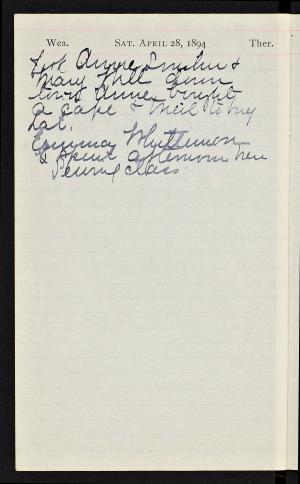 Wea. SAT. APRIL 28, 1894 Ther.
Took Annie &
Mary Hill down
town Annie bought
a cape & veil to my
hat.
Emma
& spent afternoon here
Sewing class